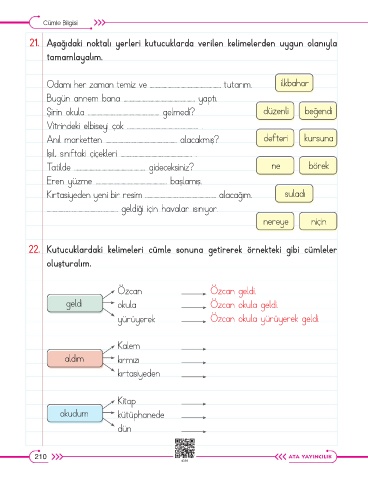 Cümle Bilgisi
21. Aşağıdaki noktalı yerleri kutucuklarda verilen kelimelerden uygun olanıyla
tamamlayalım.
Odamı her zaman temiz ve ........................ tutarım.
ilkbahar
Bugün annem bana ........................ yaptı.
Şirin okula ........................ gelmedi?
düzenli beğendi
Vitrindeki elbiseyi çok ........................ .
Anıl marketten ........................ alacakmış?
defteri kursuna
Işıl, sınıftaki çiçekleri ........................ .
Tatilde ........................ gideceksiniz?
ne börek
Eren yüzme ........................ başlamış.
Kırtasiyeden yeni bir resim ........................ alacağım.
suladı
........................ geldiği için havalar ısınıyor.
nereye niçin
22. Kutucuklardaki kelimeleri cümle sonuna getirerek örnekteki gibi cümleler
oluşturalım.
Özcan Özcan geldi.
geldi okula Özcan okula geldi.
yürüyerek Özcan okula yürüyerek geldi.
Kalem
aldım kırmızı
kırtasiyeden
Kitap
okudum kütüphanede
dün
210
ATA YAYINCILIK